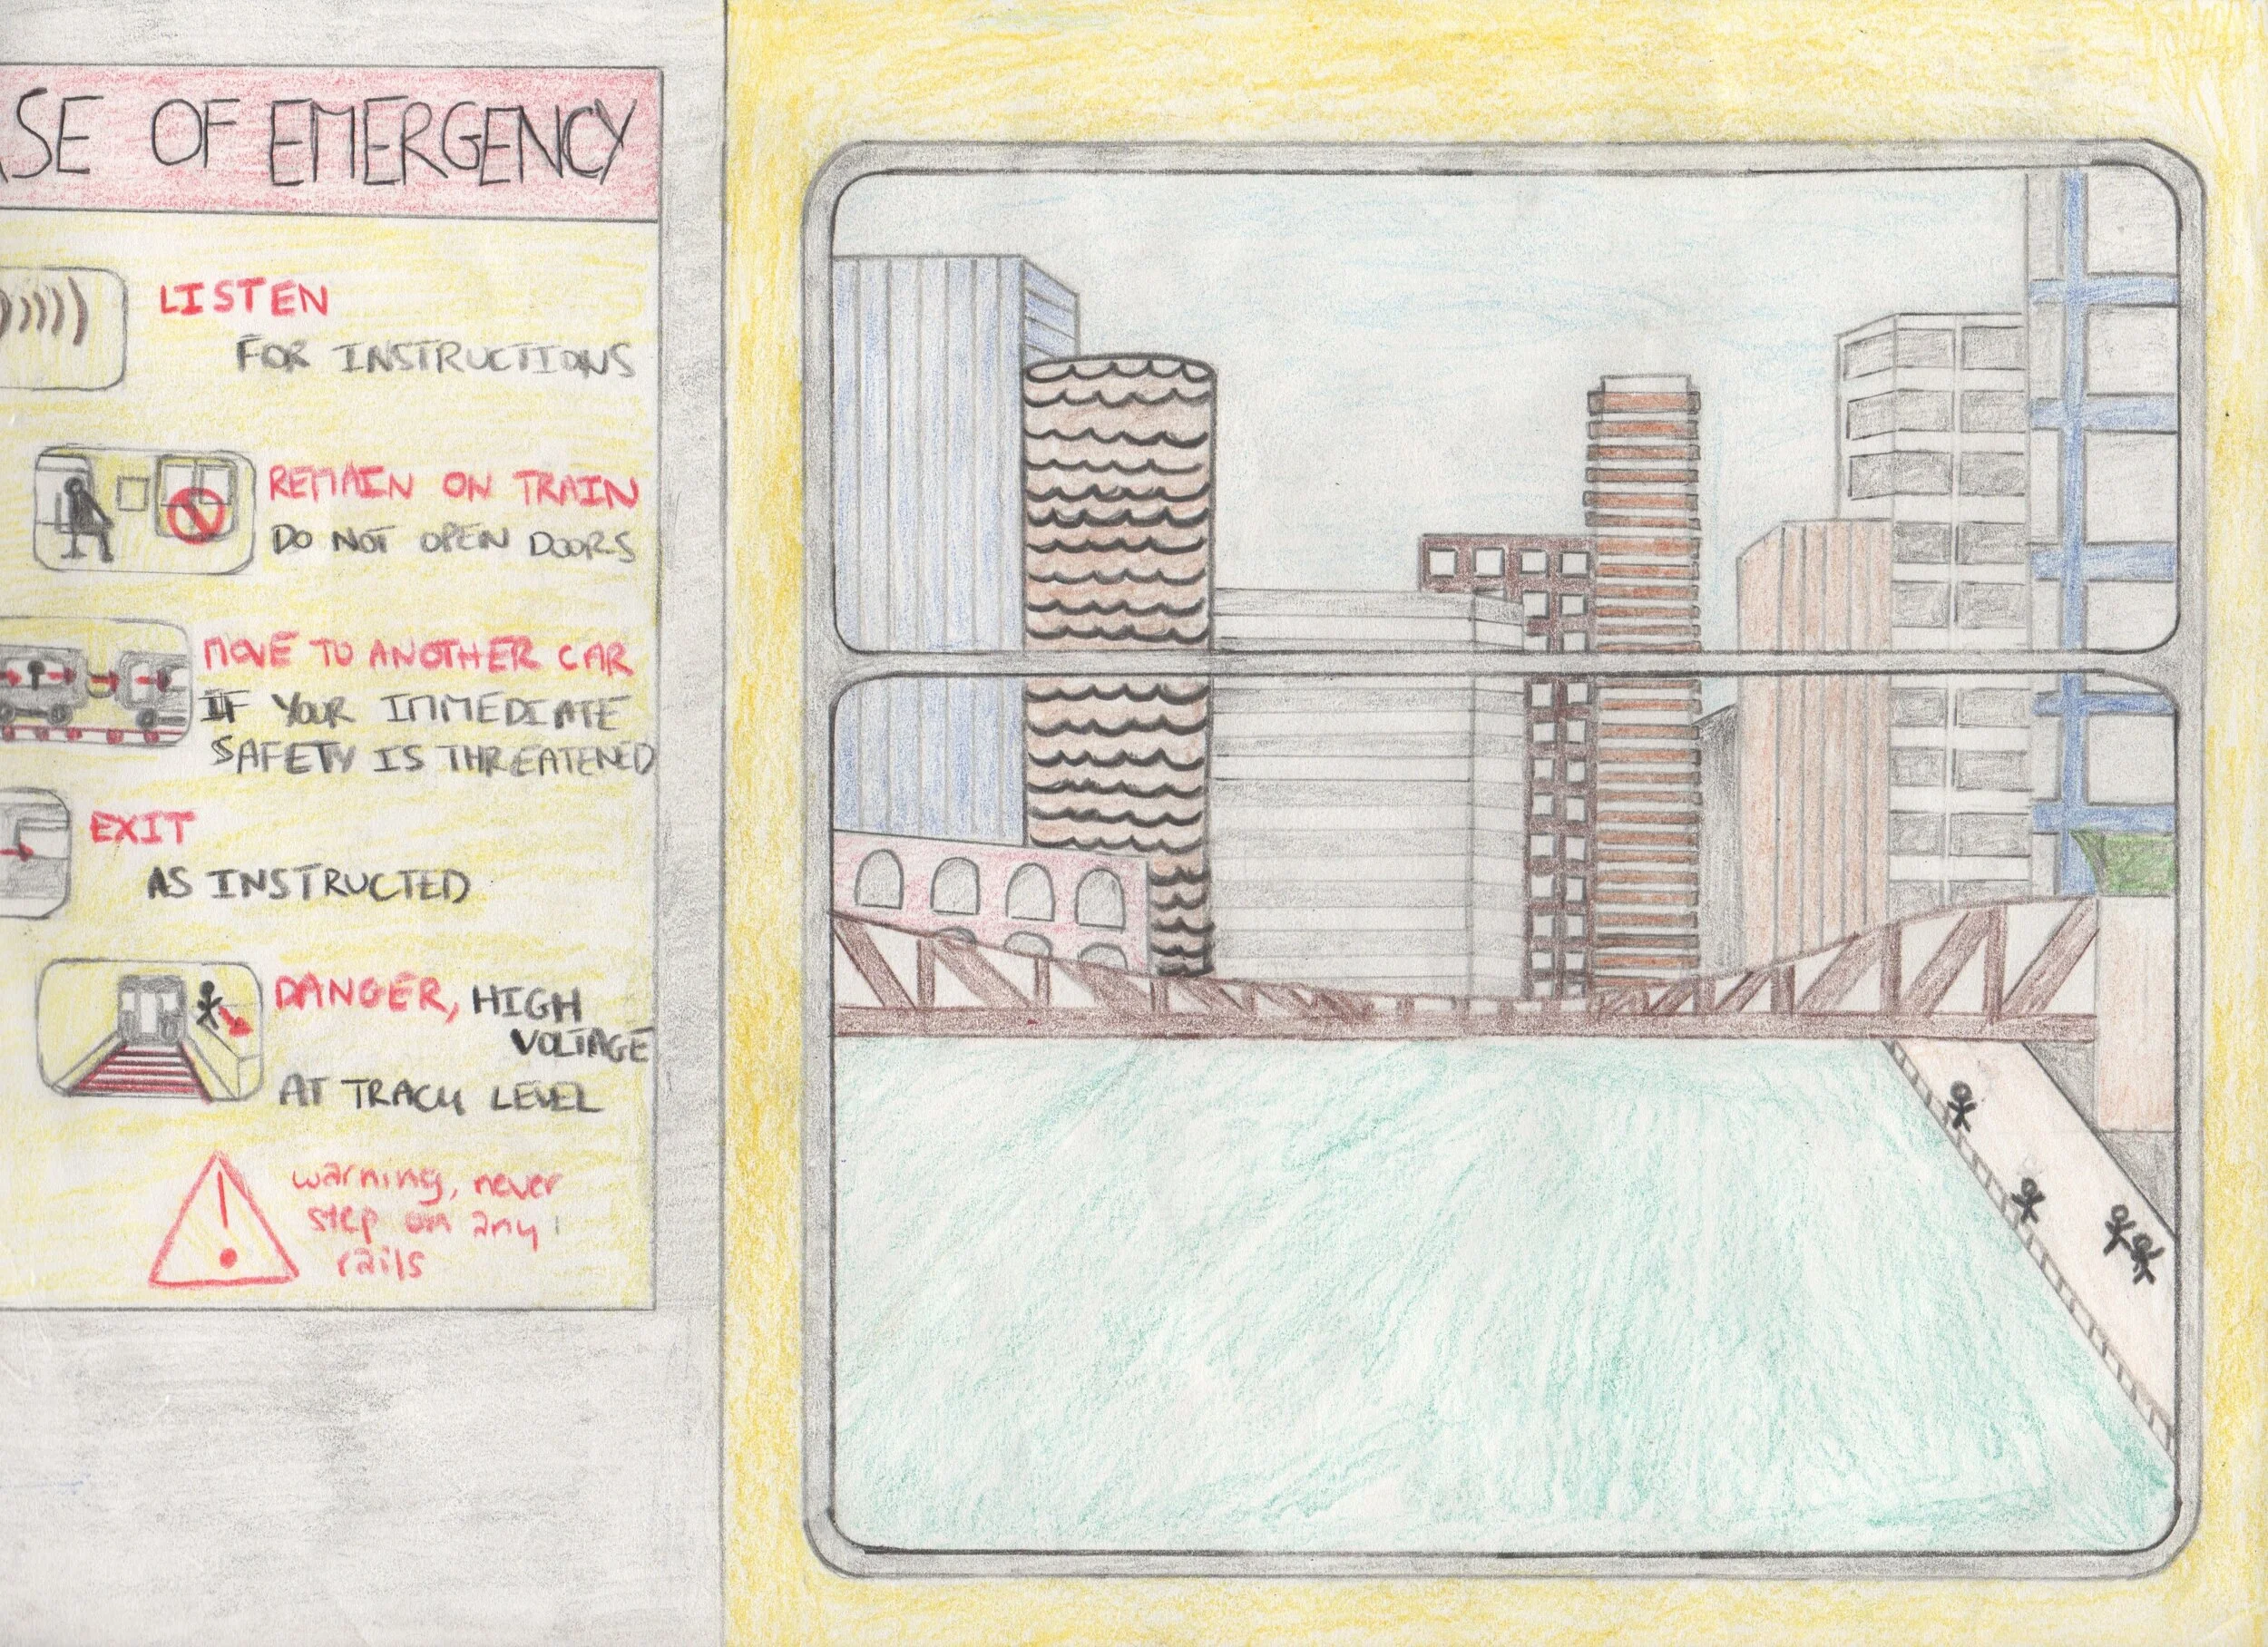 ASE OF EMERGENCY
LISTEN
FOR INSTRUCTIONS
REMAIN ON TRAIN
DO NOT OPEN DOORS
MOVE TO ANOTHER CAR
IF YOUR IMMEDIATE
SAFETY IS THREATENED
EXIT
AS INSTRUCTED
DANGER, HIGH
VOLTAGE
AT TRACK LEVEL
warning, never
step on any
rails